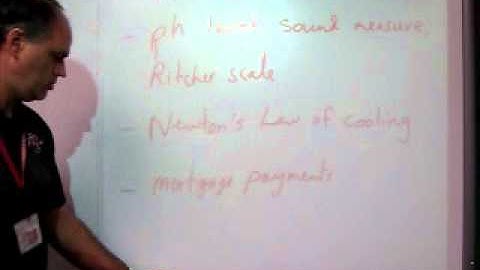 - ph level sound measure,
Ritcher scale
- Newton's Law of cooling
- mortgage payments